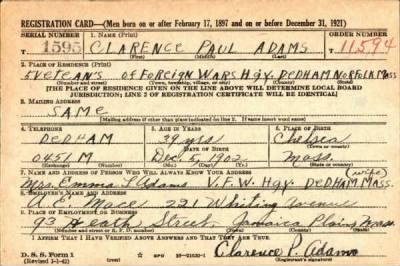 REGISTRATION CARD—(Men born on or after February 17, 1897 and on or before December 31, 1921)
SERIAL NUMBER 1. NAME (Print) ORDER NUMBER
1595 CLARENCE PAUL ADAMS 11594
(First) (Middle) (Last)
2. PLACE OF RESIDENCE (Print)
OF FOREIGN WARS Hqy. DEDHAM NORFOLK MASS
(Number and street) (Town, township, village, or city) (County) (State)
[THE PLACE OF RESIDENCE GIVEN ON THE LINE ABOVE WILL DETERMINE LOCAL BOARD
JURISDICTION; LINE 2 OF REGISTRATION CERTIFICATE WILL BE IDENTICAL]
3. MAILING ADDRESS
SAME
[Mailing address if other than place indicated on line 2. If same insert word same]
4. TELEPHONE 5. AGE IN YEARS 6. PLACE OF BIRTH
DEDHAM 39 yrs. Chelsea
DATE OF BIRTH (Town or county)
0451 M Dec. 5, 1902 Mass.
(Mo.) (Day) (Yr.) (State or country)
7. NAME AND ADDRESS OF PERSON WHO WILL ALWAYS KNOW YOUR ADDRESS (wife)
Mrs. Emma Adams V.F.W. Hqy. DEDHAM MASS.
8. EMPLOYER'S NAME AND ADDRESS
221 Whiting Avenue
9. PLACE OF EMPLOYMENT OR BUSINESS
93 Heath Street, Jamaica Plain, Mass.
(Number and street or R. F. D. number) (Town) (County) (State)
I AFFIRM THAT I HAVE VERIFIED ABOVE ANSWERS AND THAT THEY ARE TRUE.
D. S. S. Form 1 Clarence P. Adams
(Revised 1-1-42) (over) (Registrant's signature)